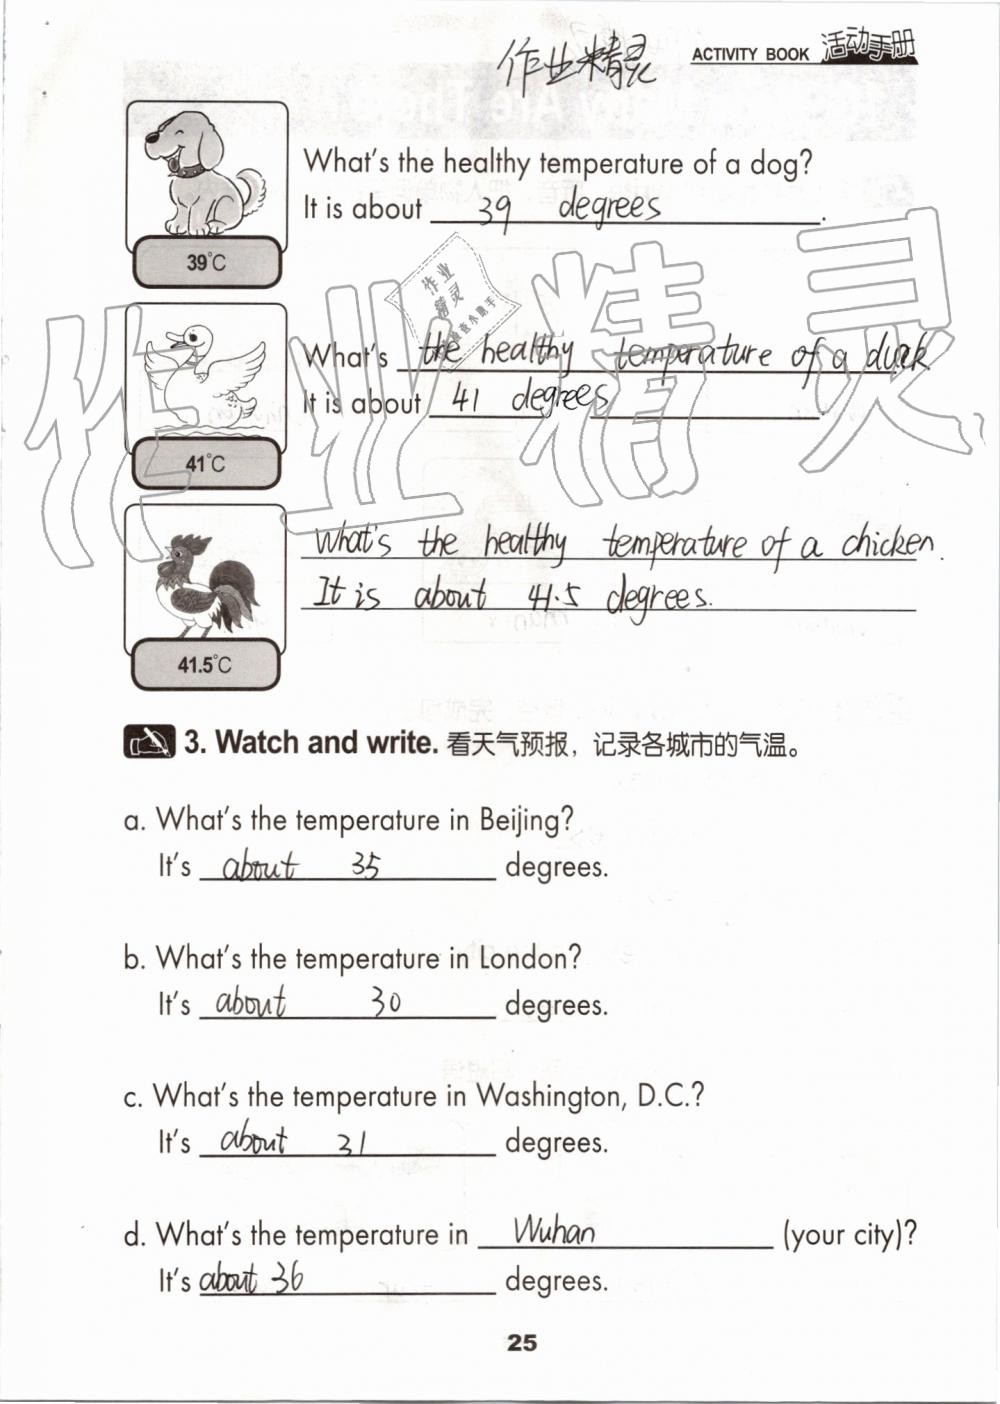 作业精灵
ACTIVITY BOOK 活动手册
What's the healthy temperature of a dog?
It is about 39 degrees.
39°C
作业
精灵
What's the healthy temperature of a duck
It is about 41 degrees.
41°C
作业精灵
What's the healthy temperature of a chicken.
It is about 41.5 degrees.
41.5°C
3. Watch and write. 看天气预报，记录各城市的气温。
a. What's the temperature in Beijing?
It's about 35 degrees.
b. What's the temperature in London?
It's about 30 degrees.
c. What's the temperature in Washington, D.C.?
It's about 31 degrees.
d. What's the temperature in Wuhan (your city)?
It's about 36 degrees.
25